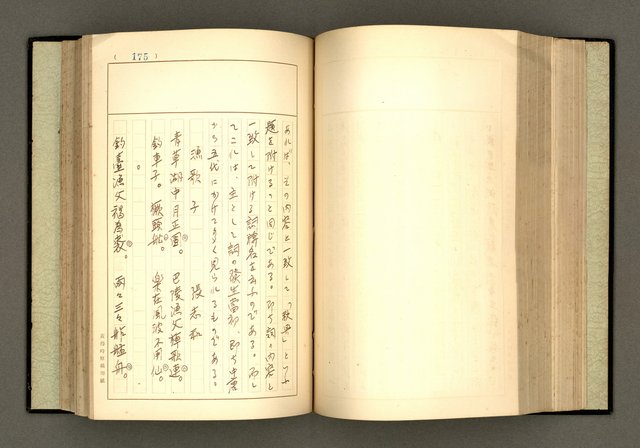 (175)
あれば、その内容と一致して「歌曲」といふ
題を附けることと同じである。即ち詞の内容と
一致して附ける詞牌名を云ふのである。而し
てこれは、主として詞の發生當初、即ち中唐
から五代にかけて多く見られるものである。
漁歌子 張志和
青草湖中月正圓。巴陵漁父棹歌連。
釣車子。橛頭船。樂在風波不用仙。
。
釣臺漁父褐為裘。兩々三々舴艋舟。